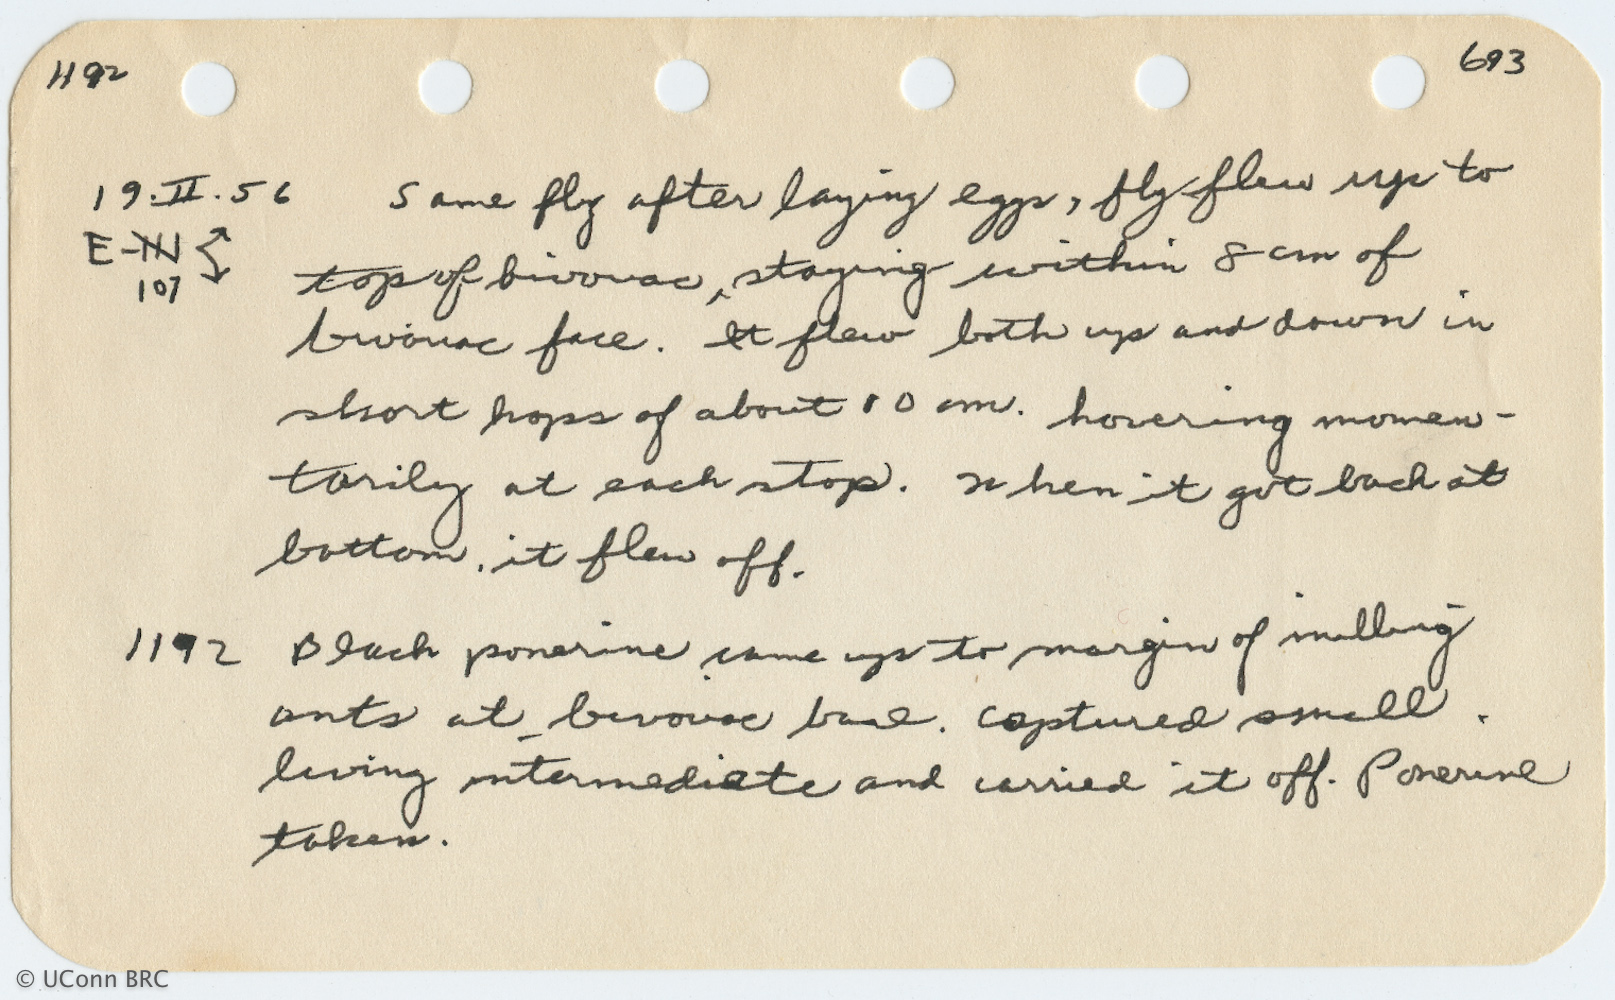 1192 693
19.II.56 Same fly after laying eggs, fly flew up to
E-
107
top of bivouac, staying within 8 cm of
bivouac face. It flew both up and down in
short hops of about 10 cm. hovering momen-
tarily at each stop. When it got back at
bottom, it flew off.
1192 Black ponerine came up to margin of milling
ants at bivouac base. Captured small
living intermediate and carried it off. Ponerine
taken.
© UConn BRC